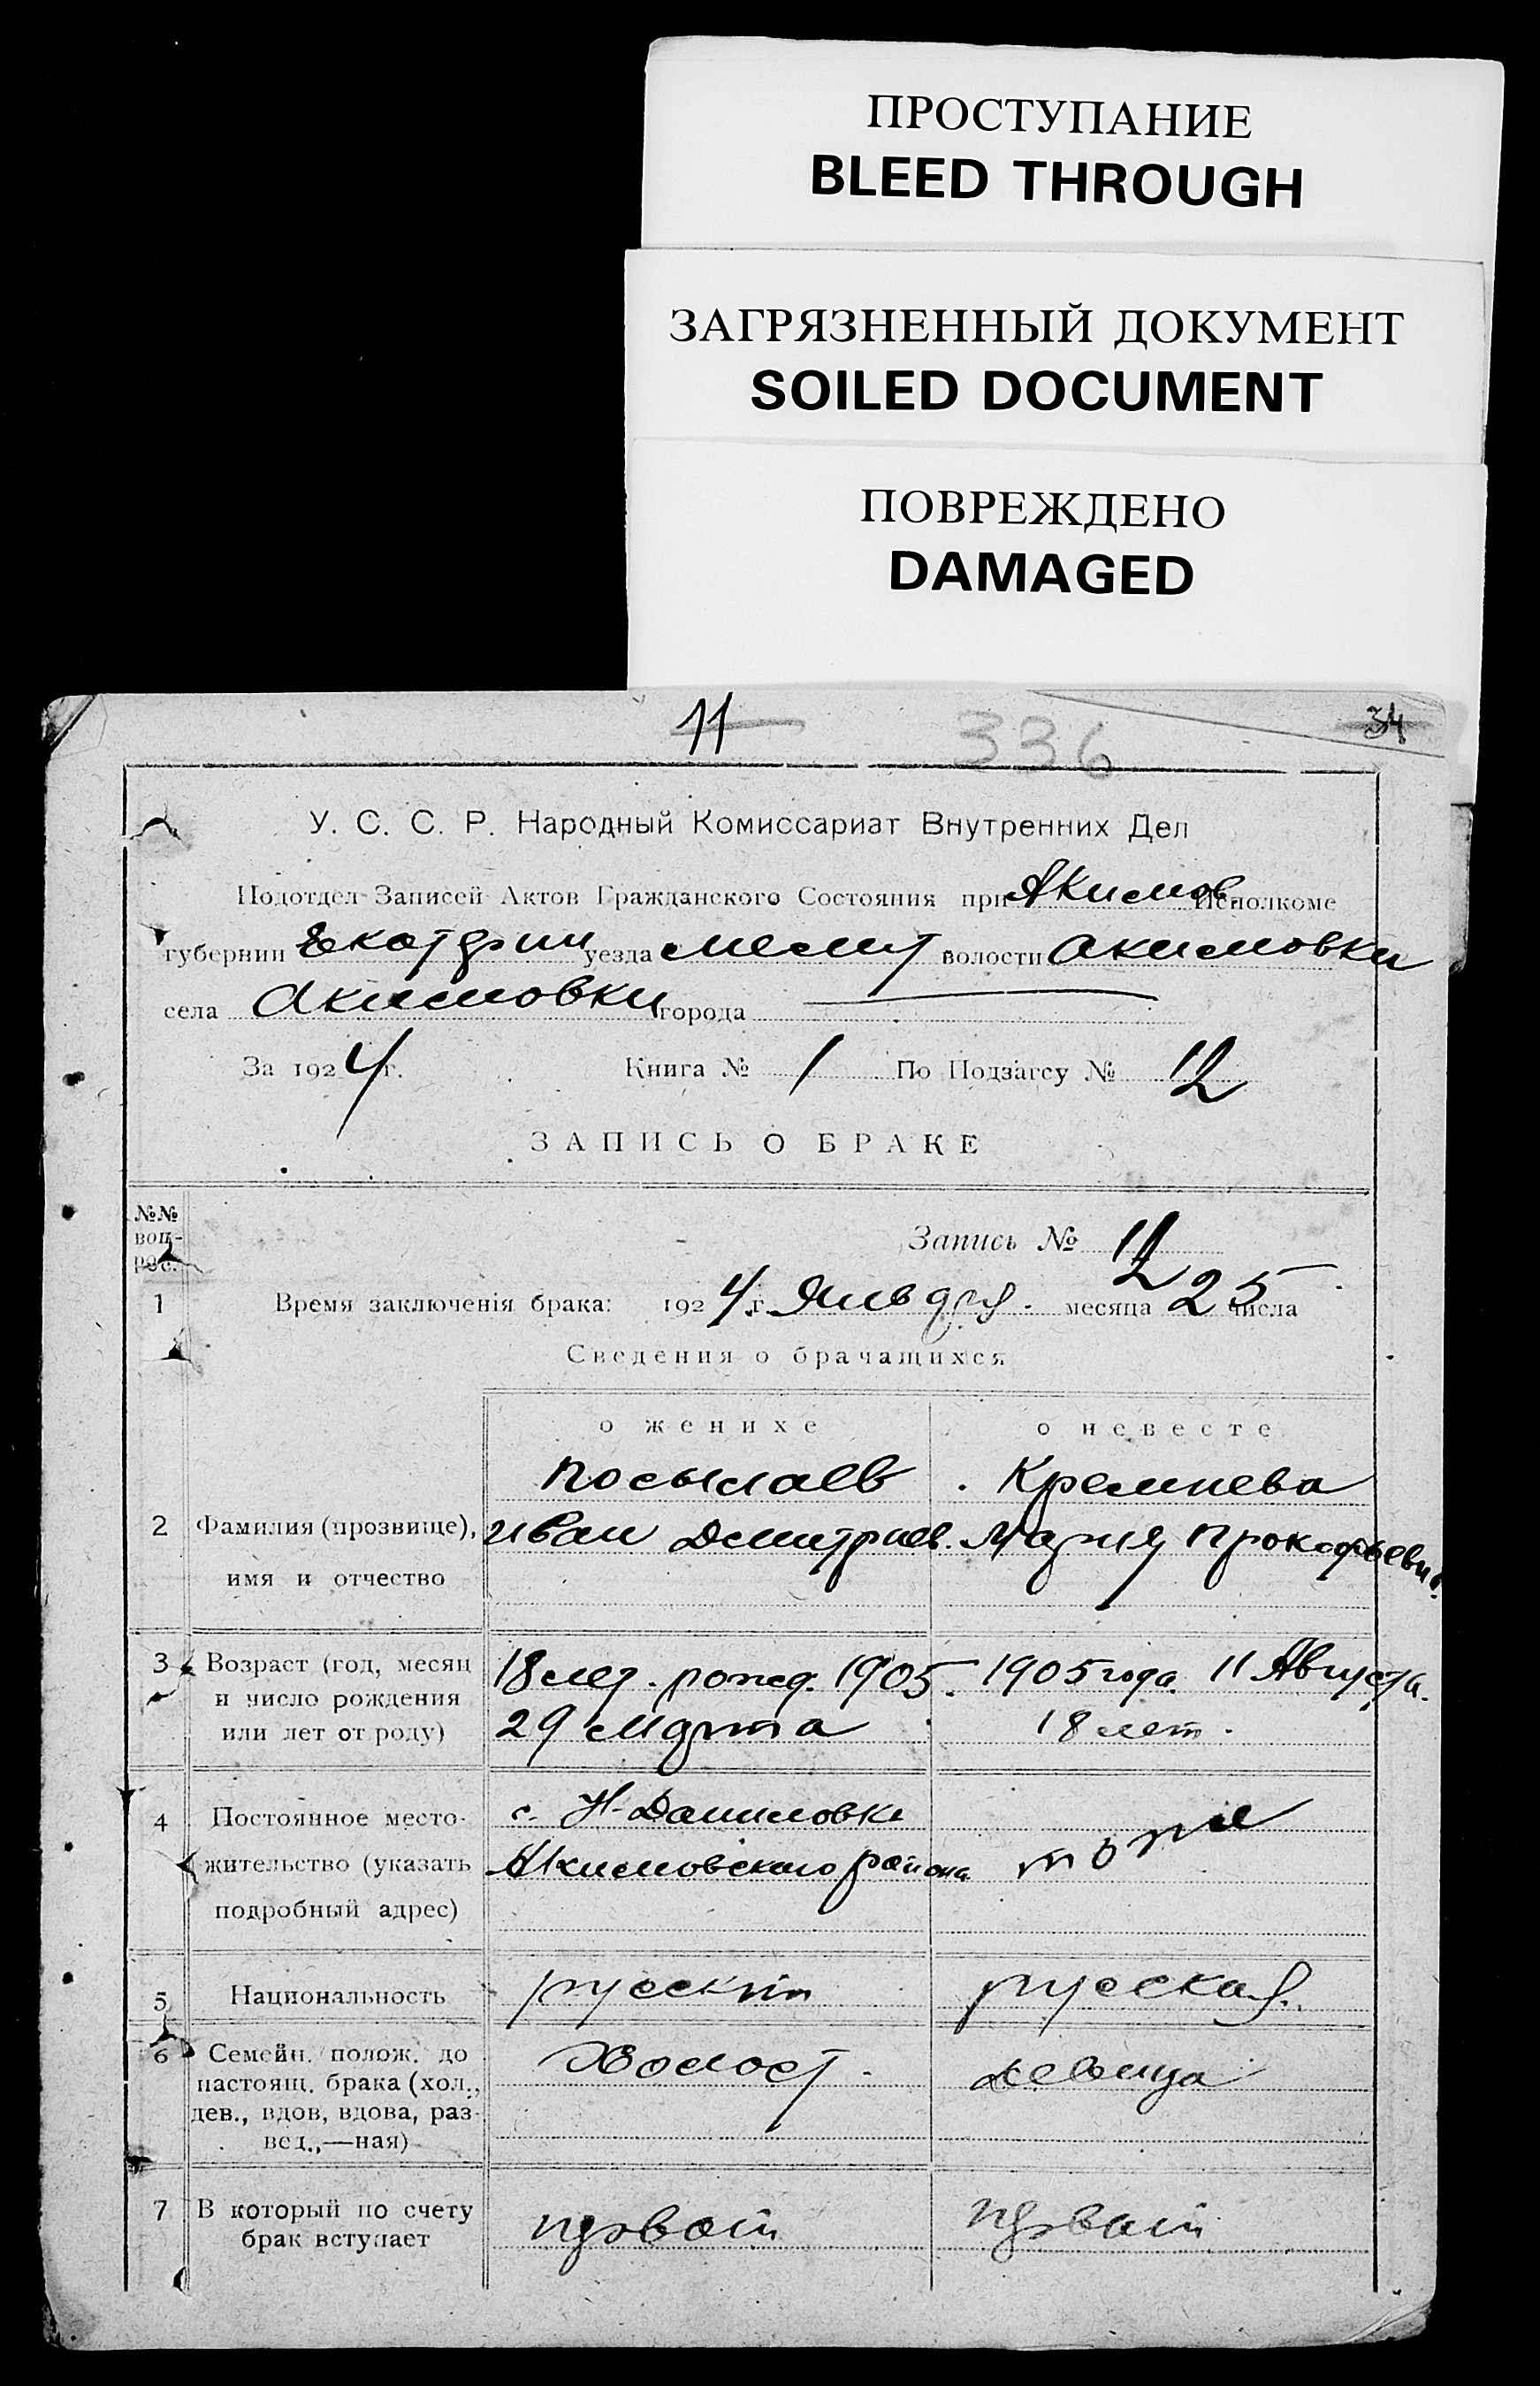 ПРОСТУПАНИЕ
BLEED THROUGH
ЗАГРЯЗНЕННЫЙ ДОКУМЕНТ
SOILED DOCUMENT
ПОВРЕЖДЕНО
DAMAGED
11 336 34
У. С. С. Р. Народный Комиссариат Внутренних Дел
Подотдел Записей Актов Гражданского Состояния при Акимов. Исполкоме
губернии Екатерин уезда Мелит волости Акимовки
села Акимовки города
За 1924 г. Книга № 1 По Подзагсу № 12
ЗАПИСЬ О БРАКЕ
№№ воп-рос.
Запись № 12
1 Время заключенія брака: 1924 г. Января. месяца 25 числа
Сведения о брачащихся
о женихе о невесте
Посылаев Кремнева
2 Фамилия (прозвище), Иван Дмитриев. Мария Прокофьевн.
имя и отчество
3 Возраст (год, месяц 18 лет. рожд. 1905. 1905 года 11 Августа.
и число рождения 29 марта 18 лет.
или лет от роду)
4 Постоянное место- с. Н-Даниловки тоже
жительство (указать Акимовского района
подробный адрес)
5 Национальность русский русская.
6 Семейн. полож. до Холост. девица
настоящ. брака (хол.,
дев., вдов, вдова, раз-
вед.,—ная)
7 В который по счету первый первый
брак вступает